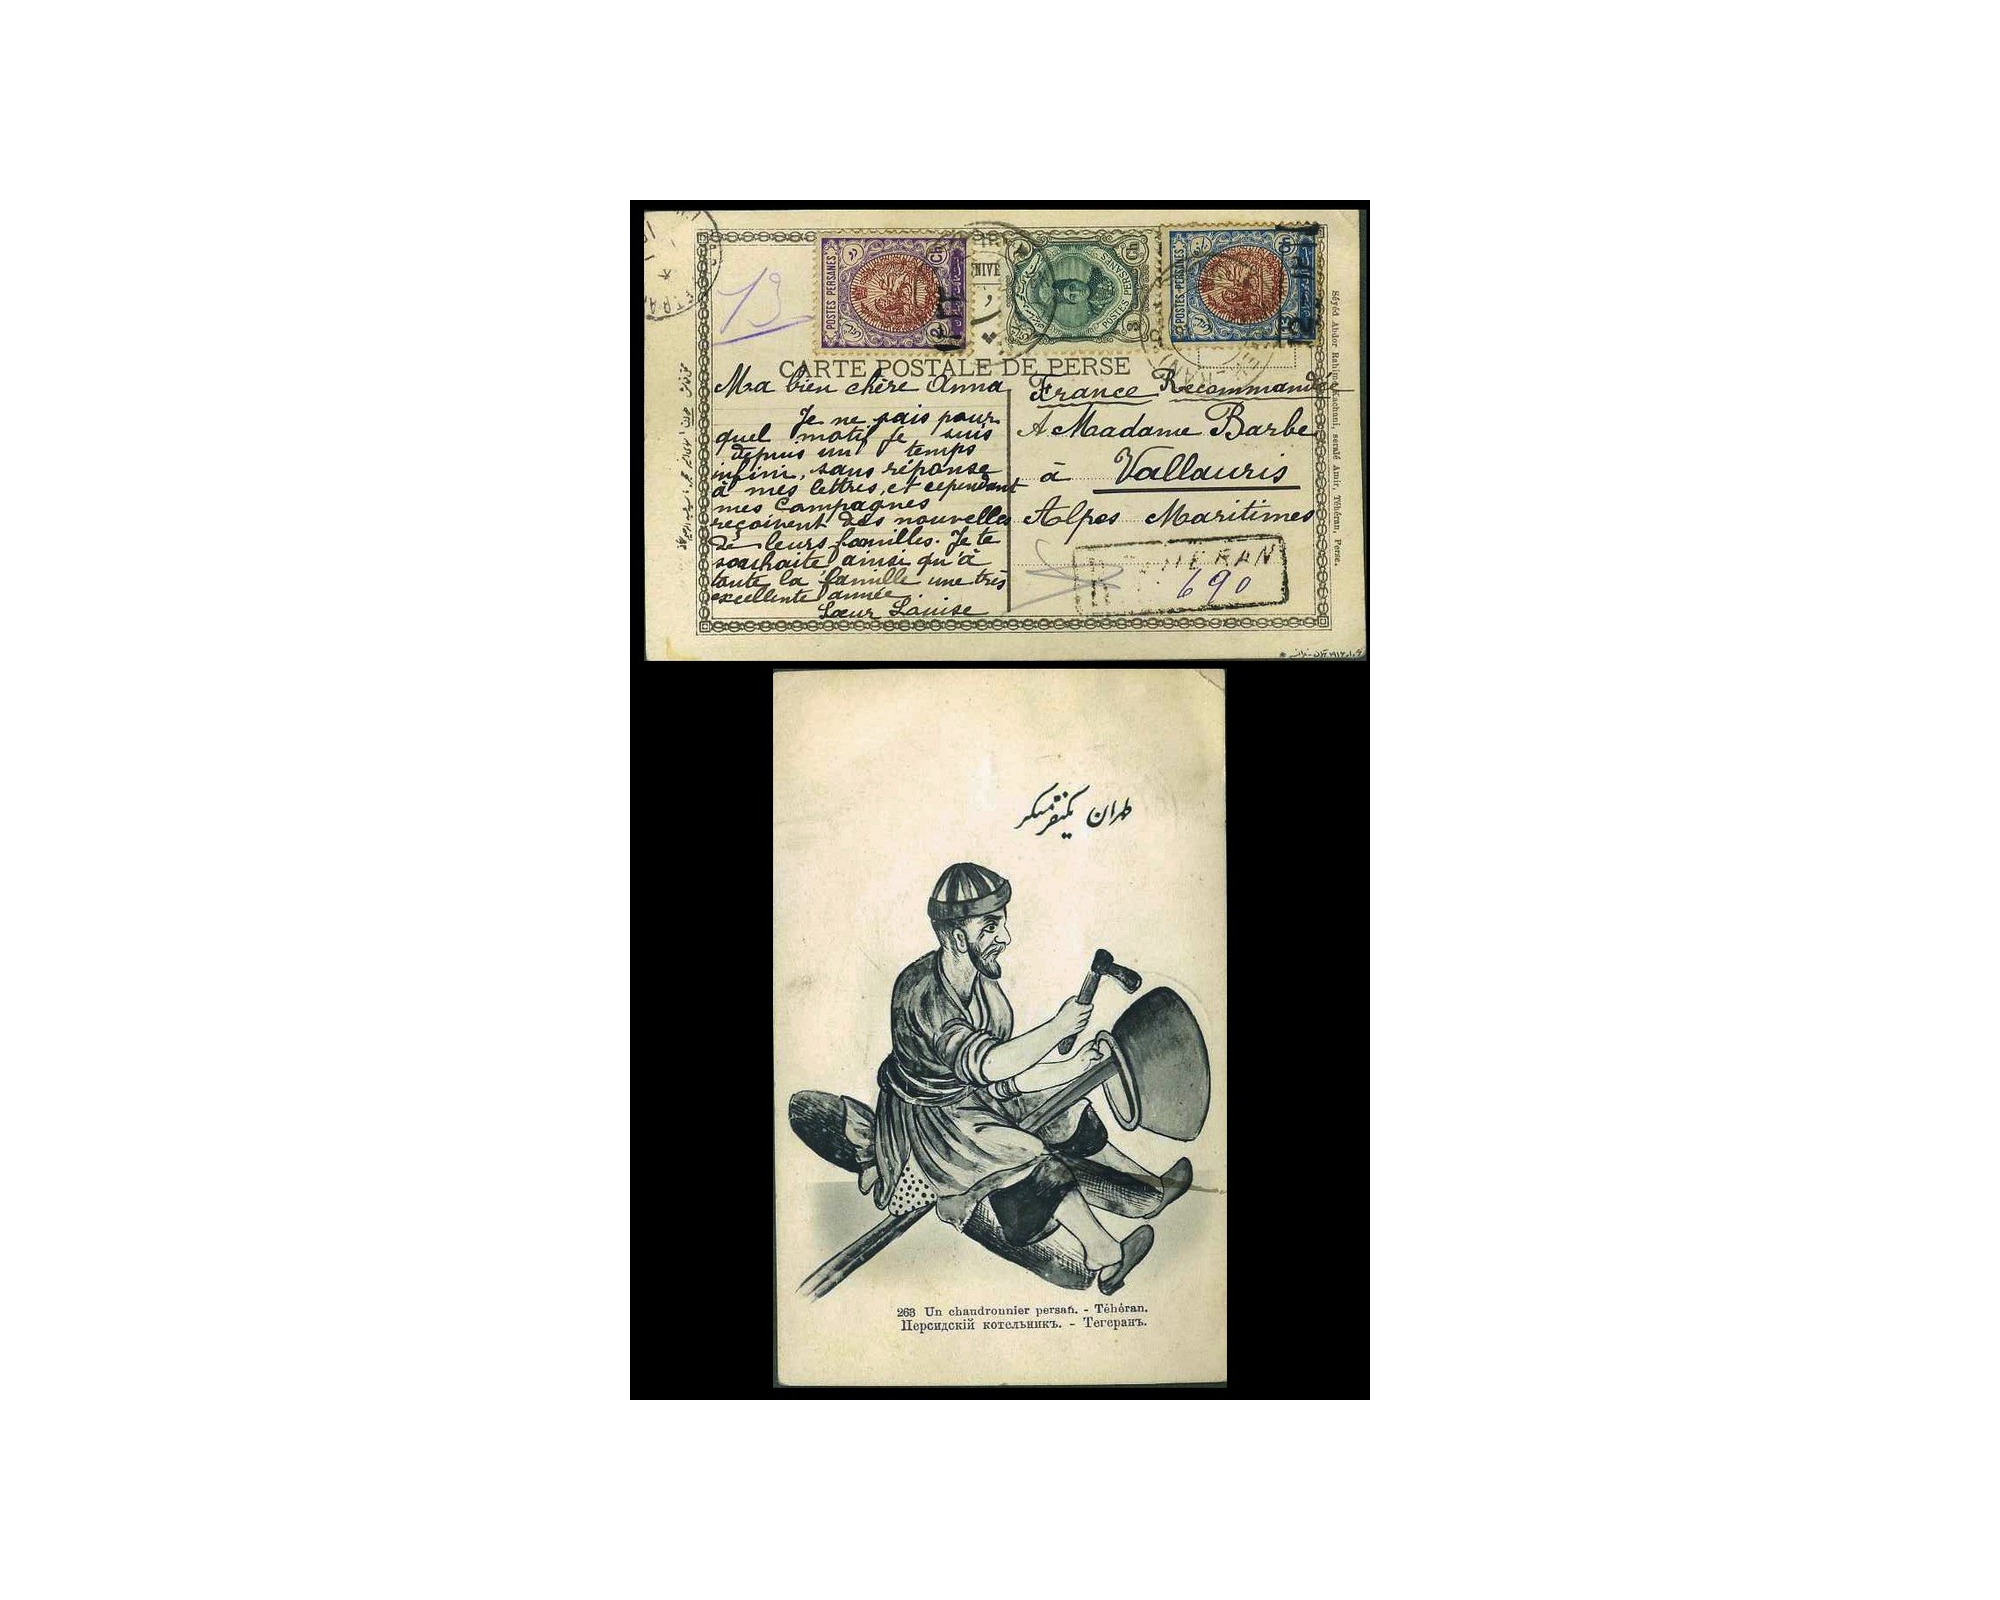 13
POSTES PERSANES
2 Ch
NIVE
POSTES PERSANES
3 Ch
POSTES PERSANES
13 Ch
CARTE POSTALE DE PERSE
Ma bien chère Anna
Je ne sais pour
quel motif je suis
depuis un temps
infini, sans réponse
à mes lettres, et cependant
mes Compagnes
reçoivent des nouvelles
de leurs familles. Je te
souhaite ainsi qu'à
toute la famille une très
excellente année
Sœur Louise
France Recommandée
A Madame Barbe
à Vallauris
Alpes Maritimes
R TEHERAN
690
Séyéd Abdor Rahim Kachani, seraïé Amir, Téhéran, Perse.
طهران یکنفر مسکر
263 Un chaudronnier persan. - Téhéran.
Персидскій котельникъ. - Тегеранъ.